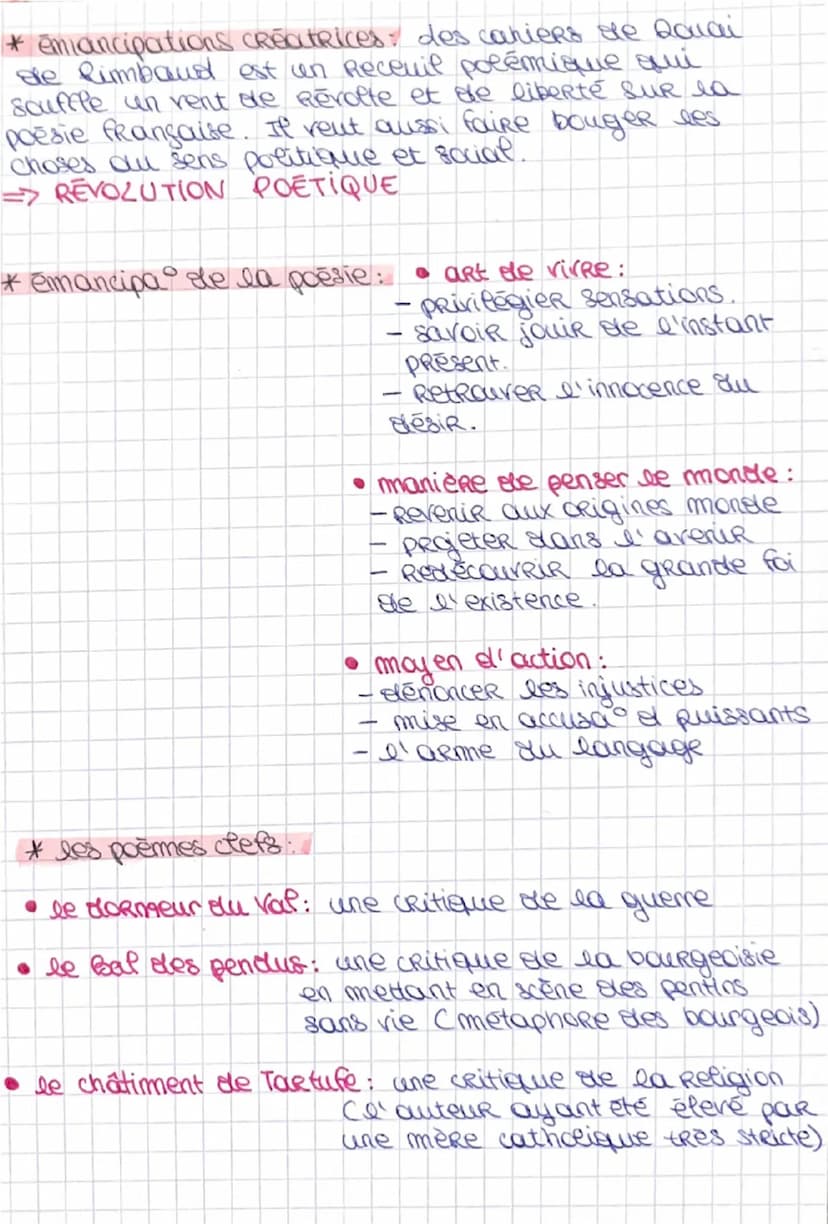 * émancipations créatrices: des cahiers de Douai
de Rimbaud est un receuil polémique qui
souffle un vent de révolte et de liberté sur la
poésie française. Il veut aussi faire bouger les
choses au sens politique et social.
=> RÉVOLUTION POÉTIQUE
* émancipa° de la poésie: • art de vivre:
- privilégier sensations.
- savoir jouir de l'instant
présent.
- Retrouver l'innocence du
désir.
• manière de penser le monde:
- Revenir aux origines monde
- projeter dans l'avenir
- Redécouvrir la grande foi
de l'existence.
• moyen d'action:
- dénoncer les injustices
- mise en accusa° d puissants
- l'arme du langage
* les poèmes clefs:
• le dormeur du val: une critique de la guerre
• le Bal des pendus: une critique de la bourgeoisie
en mettant en scène des pentins
sans vie (métaphore des bourgeois)
• le châtiment de Tartufe: une critique de la religion
(l'auteur ayant été élevé par
une mère catholique très stricte)